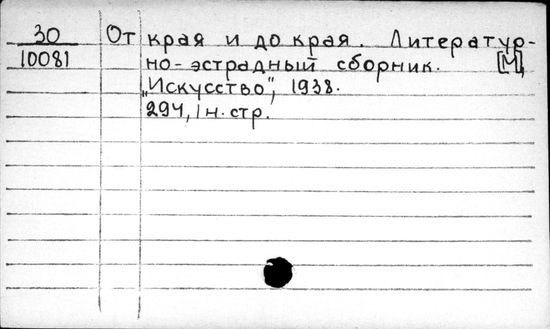 30 От края и до края. Литератур-
10081 но-эстрадный сборник. [М],
„Искусство", 1938.
294, 1 н. стр.